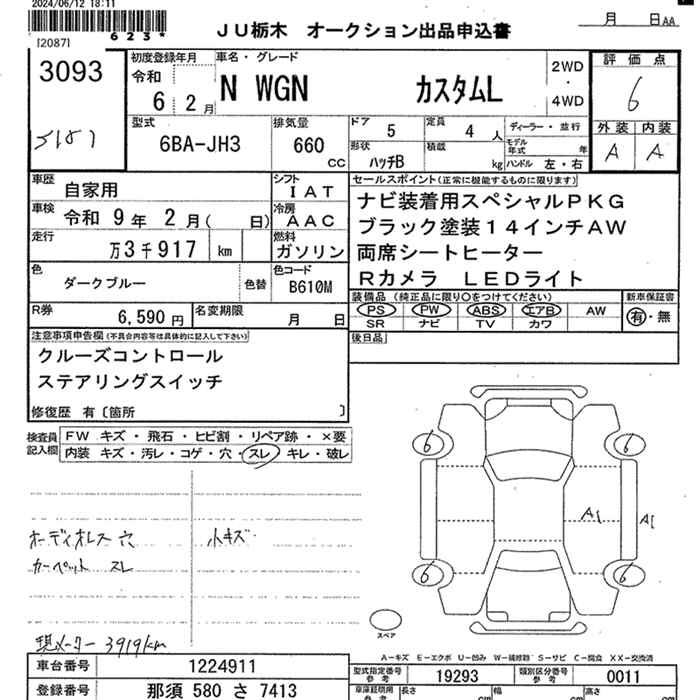 2024/06/12 18:11
623*
[2087]
JU栃木 オークション出品申込書
月 日AA
3093
初度登録年月
令和
6 2月
車名・グレード
N WGN カスタムL
2WD
・
4WD
評価点
6
型式
6BA-JH3
排気量
660
CC
ドア 5
定員 4 人
ディーラー・並行
形状 ハッチB
積載 kg
モデル年式 年
ハンドル 左・右
外装 内装
A A
車歴 自家用
シフト IAT
車検 令和 9年 2月( 日)
冷房 AAC
走行 万3千917 km
燃料 ガソリン
色 ダークブルー
色替
色コード B610M
R券 6,590円
名変期限 月 日
セールスポイント(正常に機能するものに限ります)
ナビ装着用スペシャルPKG
ブラック塗装14インチAW
両席シートヒーター
Rカメラ LEDライト
装備品 (純正品に限り○をつけてください)
PS PW ABS エアB AW
SR ナビ TV カワ
新車保証書
有・無
後日品
注意事項申告欄(不具合内容等は具体的に記入して下さい)
クルーズコントロール
ステアリングスイッチ
修復歴 有〔箇所 〕
検査員記入欄
FW キズ・飛石・ヒビ割・リペア跡・×要
内装 キズ・汚レ・コゲ・穴・スレ・キレ・破レ
オーディオレス 穴
小キズ
カーペット スレ
現メーター 3919km
6 6
A1 A1
6 6
スペア
A-キズ E-エクボ U-凹み W-補修跡 S-サビ C-腐食 XX-交換済
車台番号 1224911
登録番号 那須 580 さ 7413
型式指定番号 参考 19293
類別区分番号 参考 0011
車庫証明用 参考
長さ cm
幅 cm
高さ cm